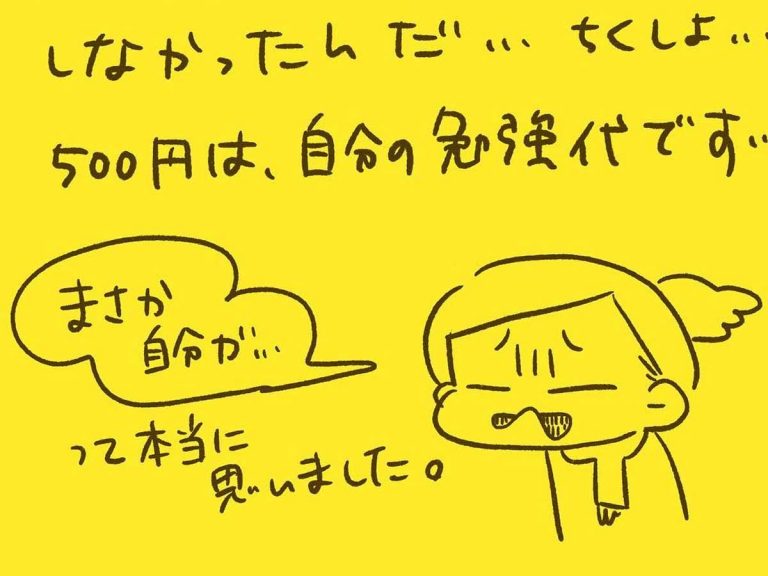 しなかったんだ… ちくしょ…
500円は、自分の勉強代です…
まさか
自分が…
って本当に
思いました。